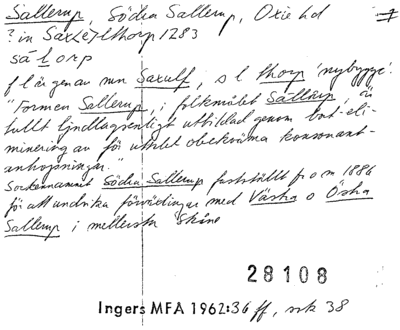 Sallerup, Södra Sallerup, Oxie hd
? in Sax(e)lthorp 1283
sä l orp
f l är gen av mn Saxulf, s l thorp 'nybygge'
"Formen Sallerup, i folkmålet Sällørp, är
fullt ljudlagsenligt utbildad genom bort-eli-
minering av för uttalet obekväma konsonant-
anhopningar."
Sockennamnet Södra Sallerup fastställt fr o m 1886
för att undvika förväxlingar med Västra o Östra
Sallerup i mellersta Skåne
28108
Ingers MFA 1962:36 ff, srk 38